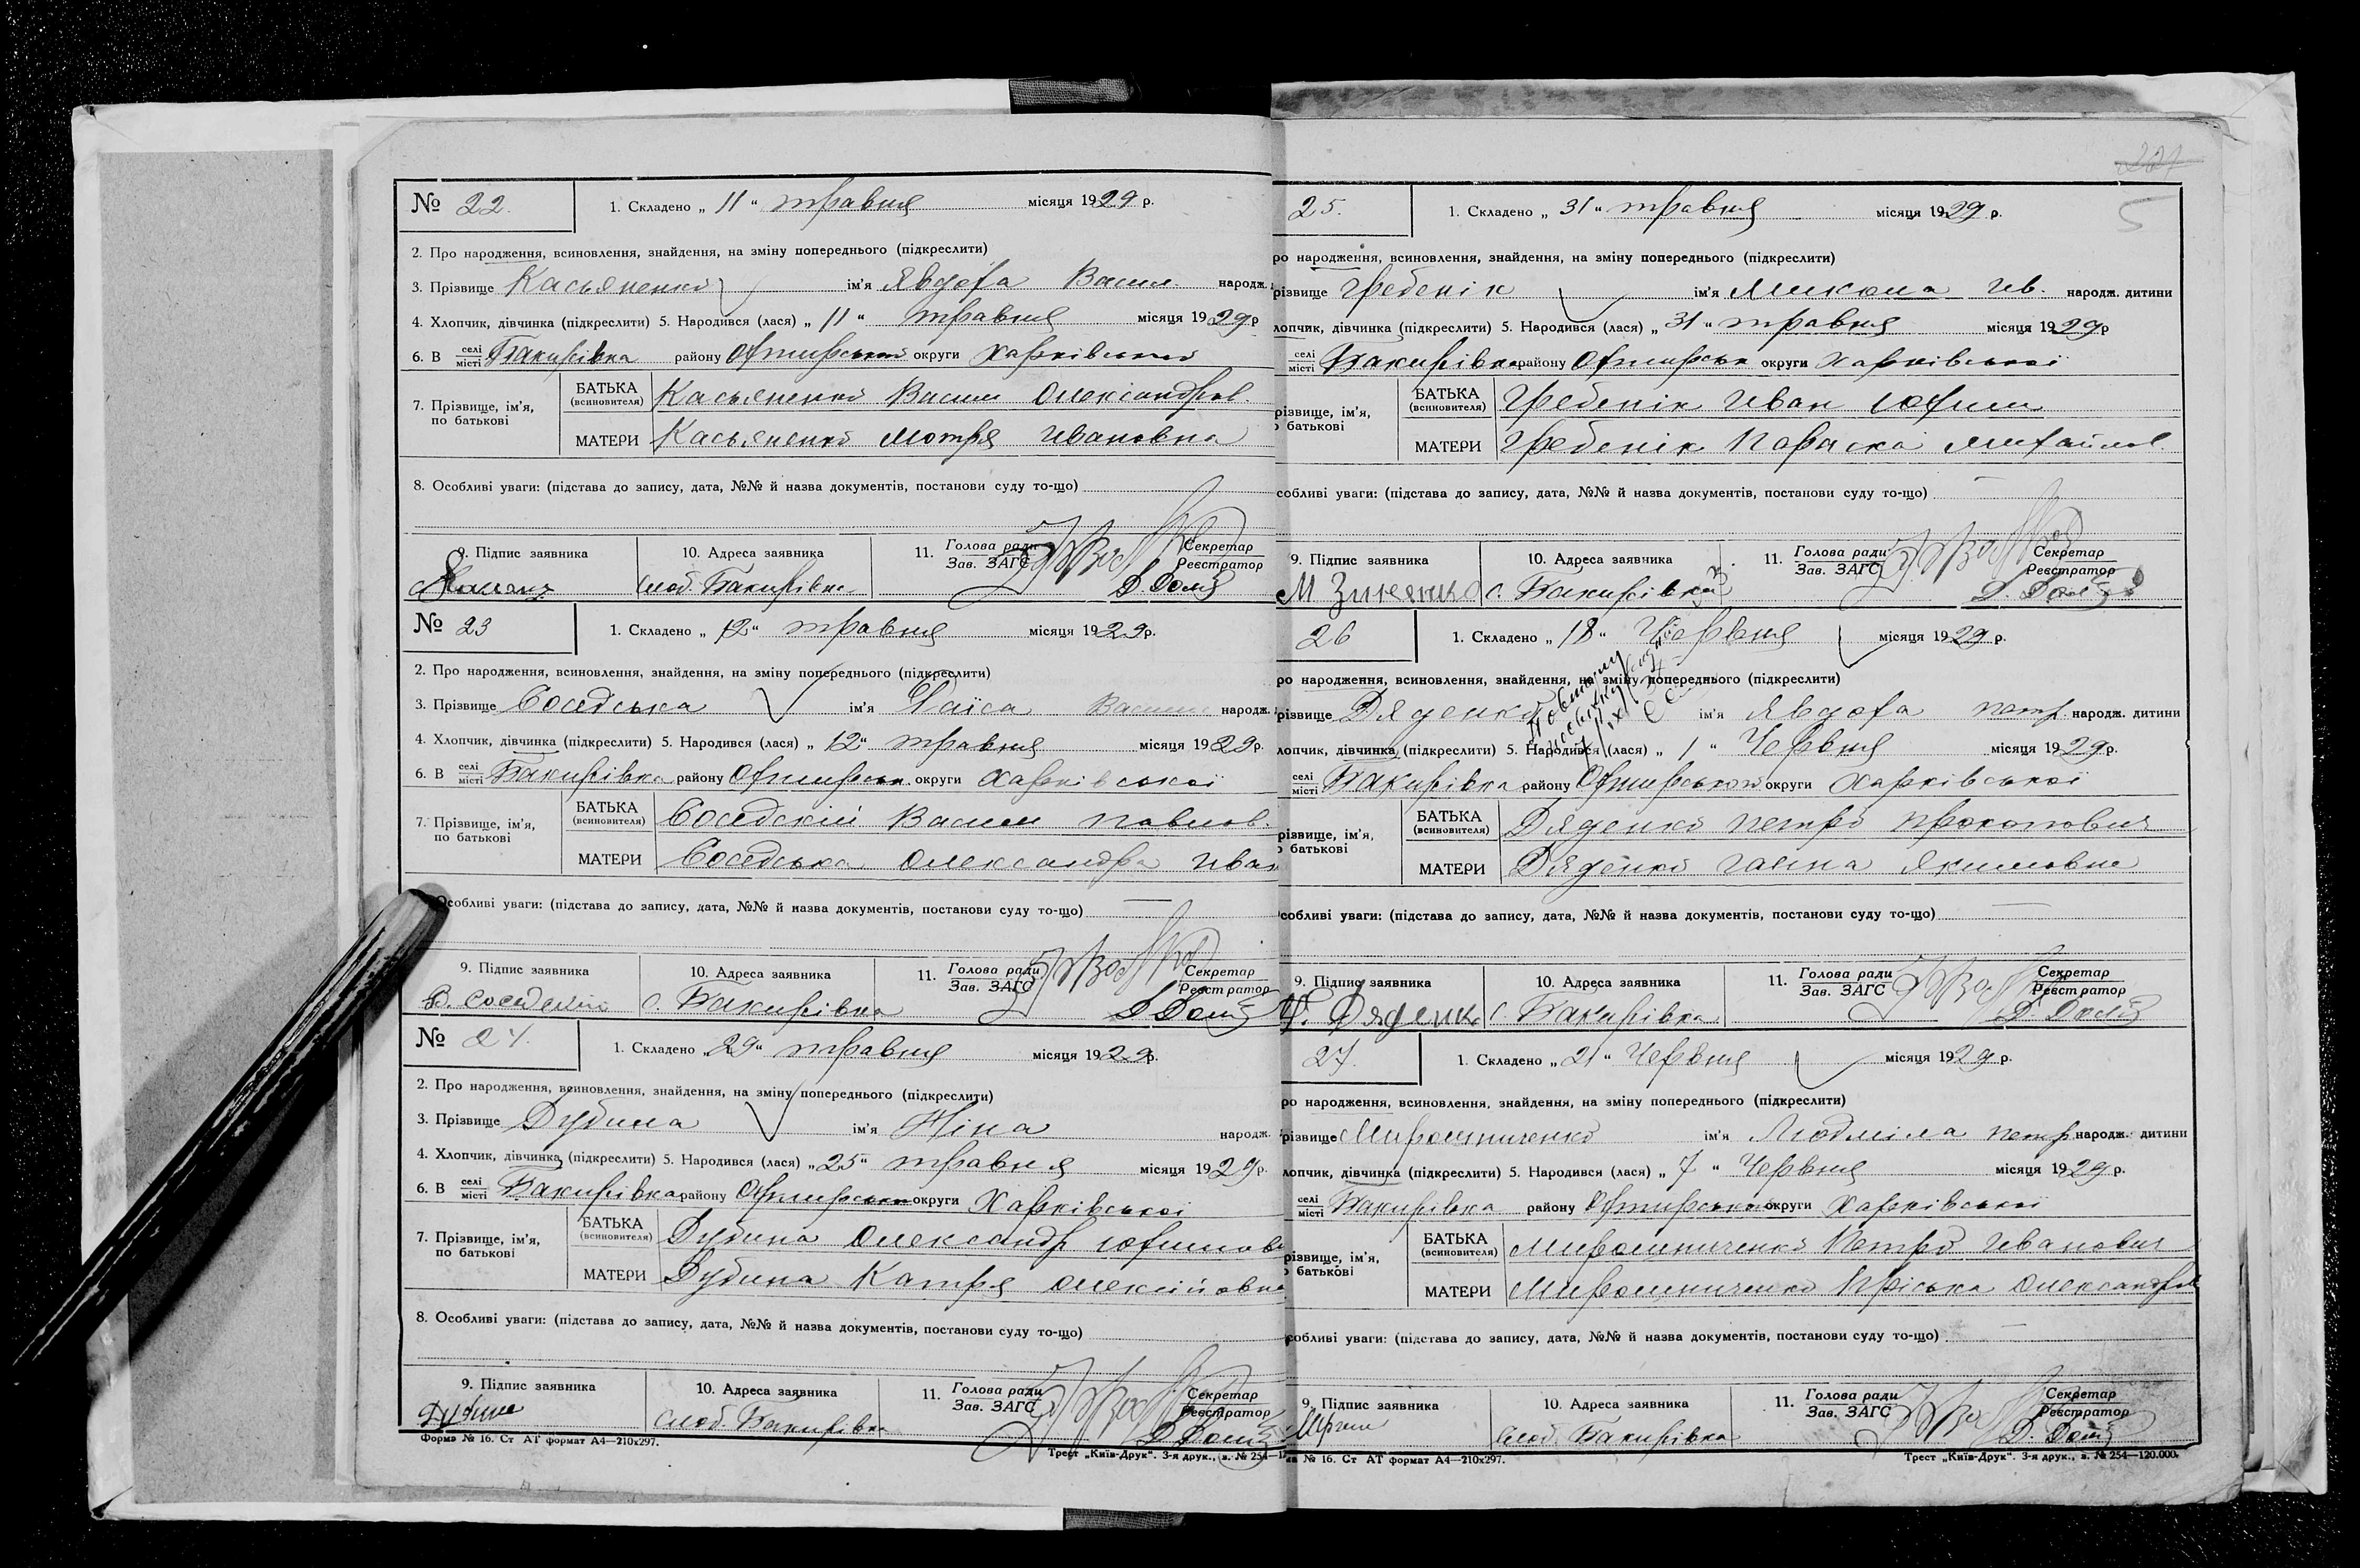 № 22. 1. Складено „ 11 “ травня місяця 1929 р.
2. Про народження, всиновлення, знайдення, на зміну попереднього (підкреслити)
3. Прізвище Касьяненко ім'я Явдоха Васил. народж.
4. Хлопчик, дівчинка (підкреслити) 5. Народився (лася) „ 11 “ травня місяця 1929 р
6. В селі місті Бакирівка району Охтирського округи Харківської
7. Прізвище, ім'я, по батькові
БАТЬКА (всиновителя) Касьяненко Васил Олександров.
МАТЕРИ Касьяненко Мотря Ивановна
8. Особливі уваги: (підстава до запису, дата, №№ й назва документів, постанови суду то-що)
9. Підпис заявника 10. Адреса заявника 11. Голова ради Зав. ЗАГС Секретар Реєстратор
слоб. Бакирівка
№ 23 1. Складено „ 12 “ травня місяця 1929 р.
2. Про народження, всиновлення, знайдення, на зміну попереднього (підкреслити)
3. Прізвище Соседська ім'я Раїса Васил народж.
4. Хлопчик, дівчинка (підкреслити) 5. Народився (лася) „ 12 “ травня місяця 1929 р.
6. В селі місті Бакирівка району Охтирськ. округи Харківської
7. Прізвище, ім'я, по батькові
БАТЬКА (всиновителя) Соседскій Васил Павлов.
МАТЕРИ Соседська Олександра Иван
Особливі уваги: (підстава до запису, дата, №№ й назва документів, постанови суду то-що)
9. Підпис заявника 10. Адреса заявника 11. Голова ради Зав. ЗАГС Секретар Реєстратор
В. Соседский с. Бакирівка
№ 24. 1. Складено „ 29 “ травня місяця 1929 р.
2. Про народження, всиновлення, знайдення, на зміну попереднього (підкреслити)
3. Прізвище Дубина ім'я Ніна народж.
4. Хлопчик, дівчинка (підкреслити) 5. Народився (лася) „ 25 “ травня місяця 1929 р.
6. В селі місті Бакирівка району Охтирськ округи Харківської
7. Прізвище, ім'я, по батькові
БАТЬКА (всиновителя) Дубина Олександр Юхимов
МАТЕРИ Дубина Катря Олексійовна
8. Особливі уваги: (підстава до запису, дата, №№ й назва документів, постанови суду то-що)
9. Підпис заявника 10. Адреса заявника 11. Голова ради Зав. ЗАГС Секретар Реєстратор
Дубина слоб. Бакирівка
Форма № 16. Ст АТ формат А4—210x297. Трест „Київ-Друк“. 3-я друк., з. № 254—12
5
25. 1. Складено „ 31 “ травня місяця 1929 р.
ро народження, всиновлення, знайдення, на зміну попереднього (підкреслити)
різвище Гребеник ім'я Микола Ив. народж. дитини
лопчик, дівчинка (підкреслити) 5. Народився (лася) „ 31 “ травня місяця 1929 р
селі місті Бакирівка району Охтирськ округи Харківської
різвище, ім'я, о батькові
БАТЬКА (всиновителя) Гребенік Иван Юхим
МАТЕРИ Гребенік Параска Михайлов.
собливі уваги: (підстава до запису, дата, №№ й назва документів, постанови суду то-що)
9. Підпис заявника 10. Адреса заявника 11. Голова ради Зав. ЗАГС Секретар Реєстратор
М Зиненко с. Бакирівка
26 1. Складено „ 18 “ Червня місяця 1929 р.
ро народження, всиновлення, знайдення, на зміну попереднього (підкреслити)
різвище Дяденко ім'я Явдоха Петр. народж. дитини
лопчик, дівчинка (підкреслити) 5. Народився (лася) „ 1 “ Червня місяця 1929 р.
селі місті Бакирівка району Охтирського округи Харківської
різвище, ім'я, о батькові
БАТЬКА (всиновителя) Дяденко Петро Прокопович
МАТЕРИ Дяденко Ганна Якимовна
собливі уваги: (підстава до запису, дата, №№ й назва документів, постанови суду то-що)
9. Підпис заявника 10. Адреса заявника 11. Голова ради Зав. ЗАГС Секретар Реєстратор
Дяденко с. Бакирівка
27. 1. Складено „ 21 “ Червня місяця 1929 р.
ро народження, всиновлення, знайдення, на зміну попереднього (підкреслити)
різвище Мирошниченко ім'я Людміла Петр народж. дитини
лопчик, дівчинка (підкреслити) 5. Народився (лася) „ 7 “ Червня місяця 1929 р.
селі місті Бакирівка району Охтирського округи Харківської
різвище, ім'я, о батькові
БАТЬКА (всиновителя) Мирошниченко Петро Иванович
МАТЕРИ Мирошниченко Пріська Олександров
собливі уваги: (підстава до запису, дата, №№ й назва документів, постанови суду то-що)
9. Підпис заявника 10. Адреса заявника 11. Голова ради Зав. ЗАГС Секретар Реєстратор
слоб. Бакирівка
ма № 16. Ст АТ формат А4—210x297. Трест „Київ-Друк“. 3-я друк., з. № 254—120.000.